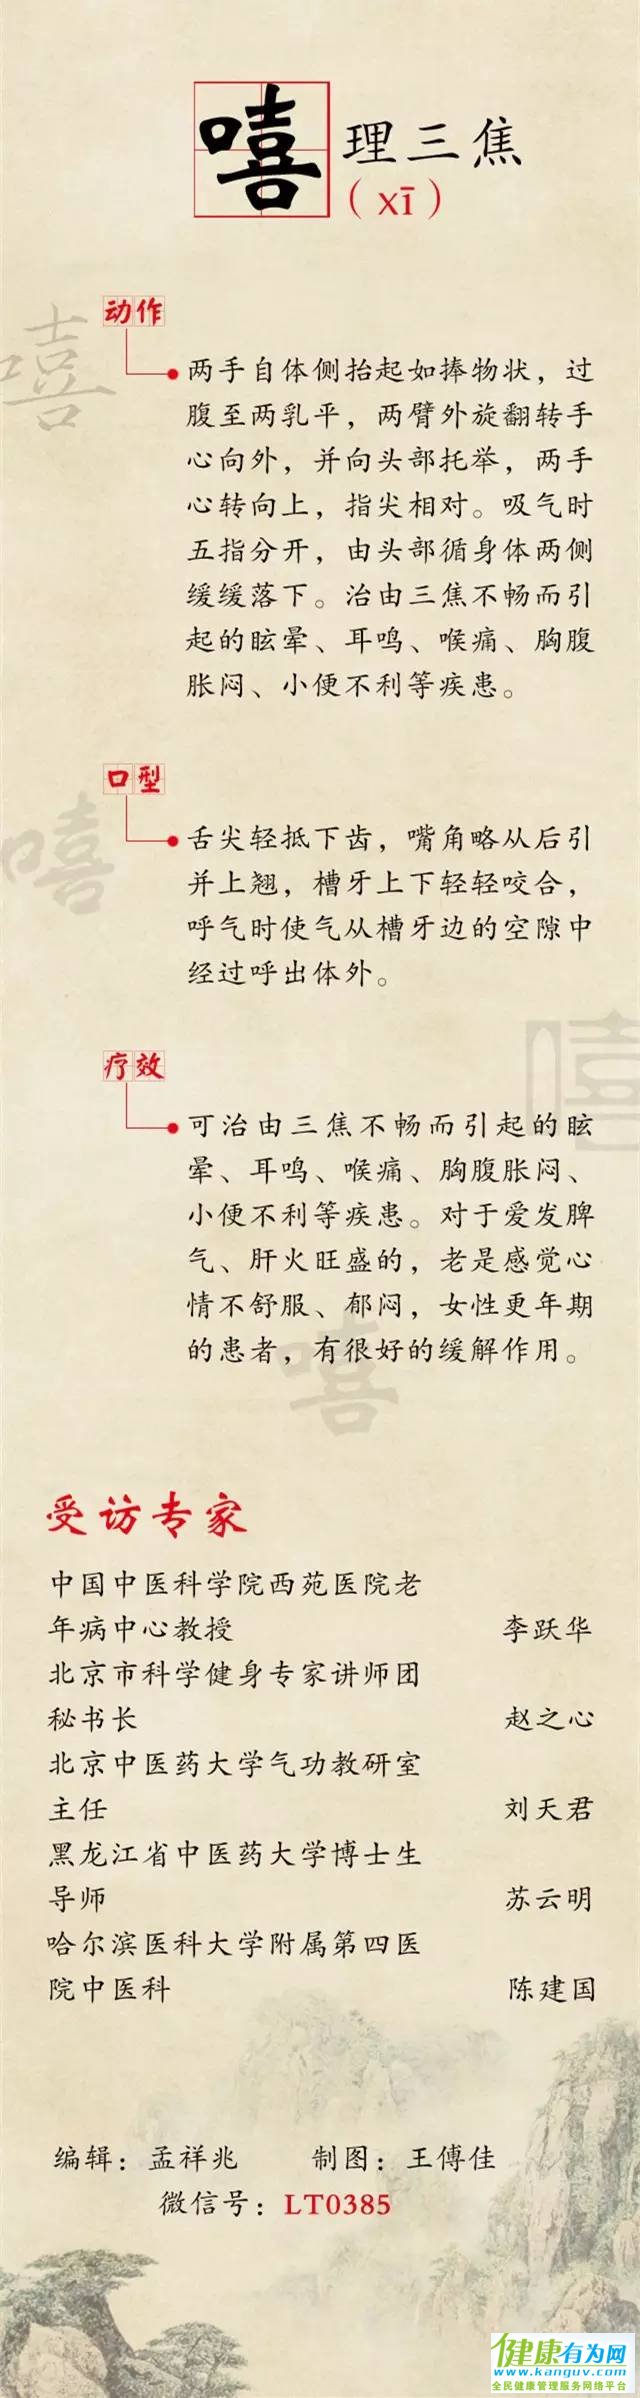 嘻 理三焦
（xī）
动作
两手自体侧抬起如捧物状，过
腹至两乳平，两臂外旋翻转手
心向外，并向头部托举，两手
心转向上，指尖相对。吸气时
五指分开，由头部循身体两侧
缓缓落下。治由三焦不畅而引
起的眩晕、耳鸣、喉痛、胸腹
胀闷、小便不利等疾患。
口型
舌尖轻抵下齿，嘴角略从后引
并上翘，槽牙上下轻轻咬合，
呼气时使气从槽牙边的空隙中
经过呼出体外。
疗效
可治由三焦不畅而引起的眩
晕、耳鸣、喉痛、胸腹胀闷、
小便不利等疾患。对于爱发脾
气、肝火旺盛的，老是感觉心
情不舒服、郁闷，女性更年期
的患者，有很好的缓解作用。
嘻
嘻
嘻
嘻
受访专家
中国中医科学院西苑医院老
年病中心教授 李跃华
北京市科学健身专家讲师团
秘书长 赵之心
北京中医药大学气功教研室
主任 刘天君
黑龙江省中医药大学博士生
导师 苏云明
哈尔滨医科大学附属第四医
院中医科 陈建国
编辑：孟祥兆 制图：王傅佳
微信号：LT0385
健康有为网
www.kanguv.com
全民健康管理服务网络平台